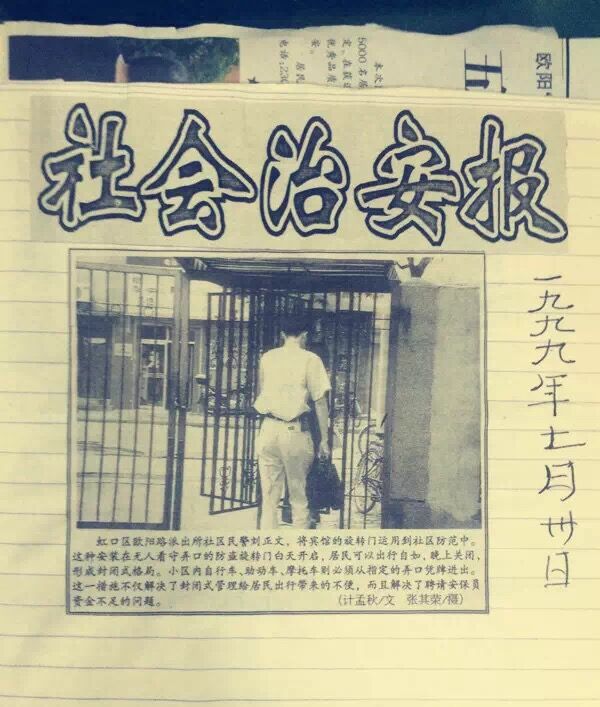 本次
5000名居
定,在获
优秀品质
安。
居民
电话:230
五
欧阳
社会治安报
一九九九年七月卅日
虹口区欧阳路派出所社区民警刘正文,将宾馆的旋转门运用到社区防范中。
这种安装在无人看守弄口的防盗旋转门白天开启,居民可以出行自如,晚上关闭,
形成封闭式格局。小区内自行车、助动车、摩托车则必须从指定的弄口凭牌进出。
这一措施不仅解决了封闭式管理给居民出行带来的不便,而且解决了聘请安保员
资金不足的问题。 (计孟秋/文 张其荣/摄)